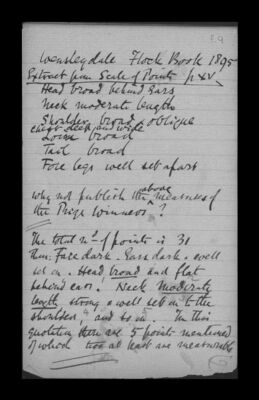 Wensleydale Flock Book 1895
Extract from Scale of Points p XV
Head broad behind Ears
Neck moderate length
Shoulder broad & oblique
chest deep and wide
Loins broad
Tail broad
Fore legs well set apart
why not publish the above measures of
the Prize winners?
The total no of points is 31
thus, Face dark. Ears dark & well
set on. Head broad and flat
behind ears. Neck moderate
length strong & well set in to the
shoulders," and so on. In this
quotation there are 5 points mentioned
of which two at least are measurable